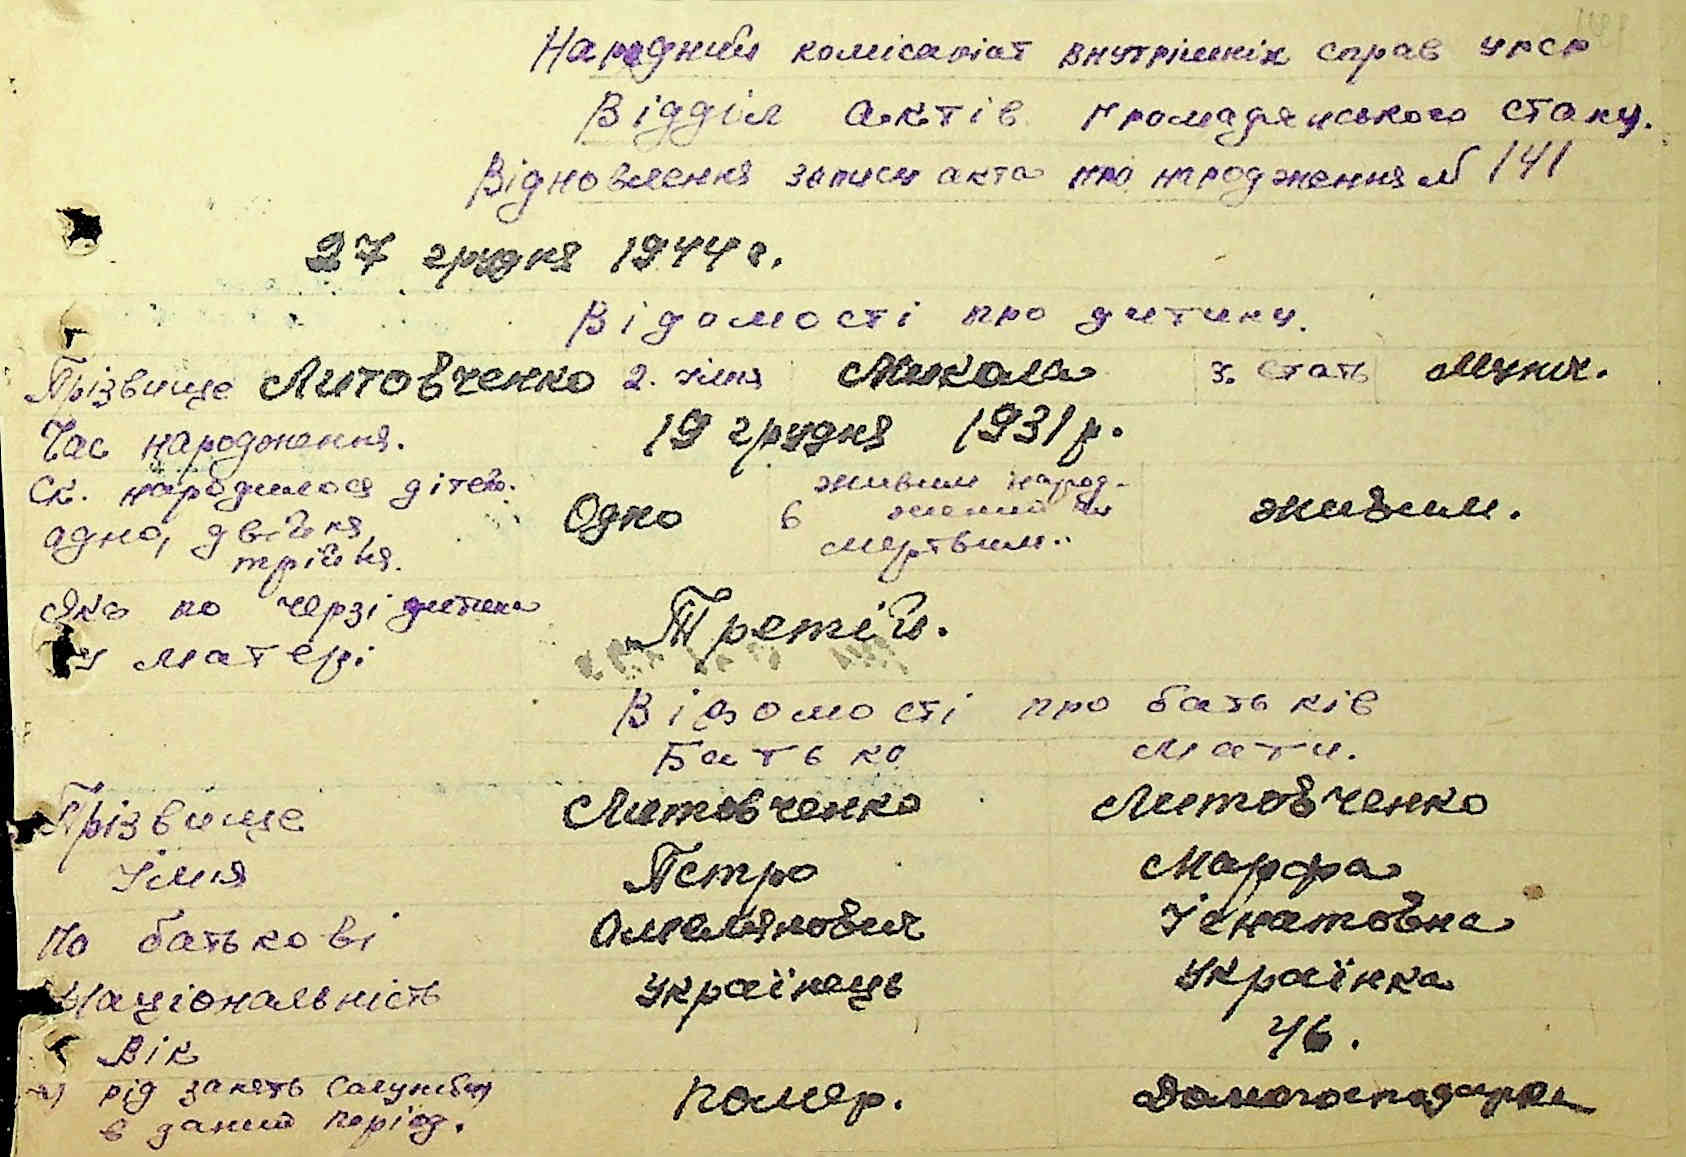 Народний комісаріат внутрішніх справ УРСР
Відділ актів громадянського стану.
Відновлення запису акта про народження № 141
27 грудня 1944 г.
Відомості про дитину.
Прізвище Литовченко 2. імя Микола 3. стать Мужч.
Час народження. 19 грудня 1931 р.
Ск. народилося дітей. одно, двійня, трійня. Одно 6 живим народжений чи мертвим.. живим.
Яка по черзі дитина у матері Третій.
Відомості про батьків
Батько Мати.
Прізвище Литовченко Литовченко
Імя Петро Марфа
По батькові Омелянович Ігнатовна
Національність Українець Українка
Вік 46.
а) рід занять служби в даний період. Помер. Домогосподарка